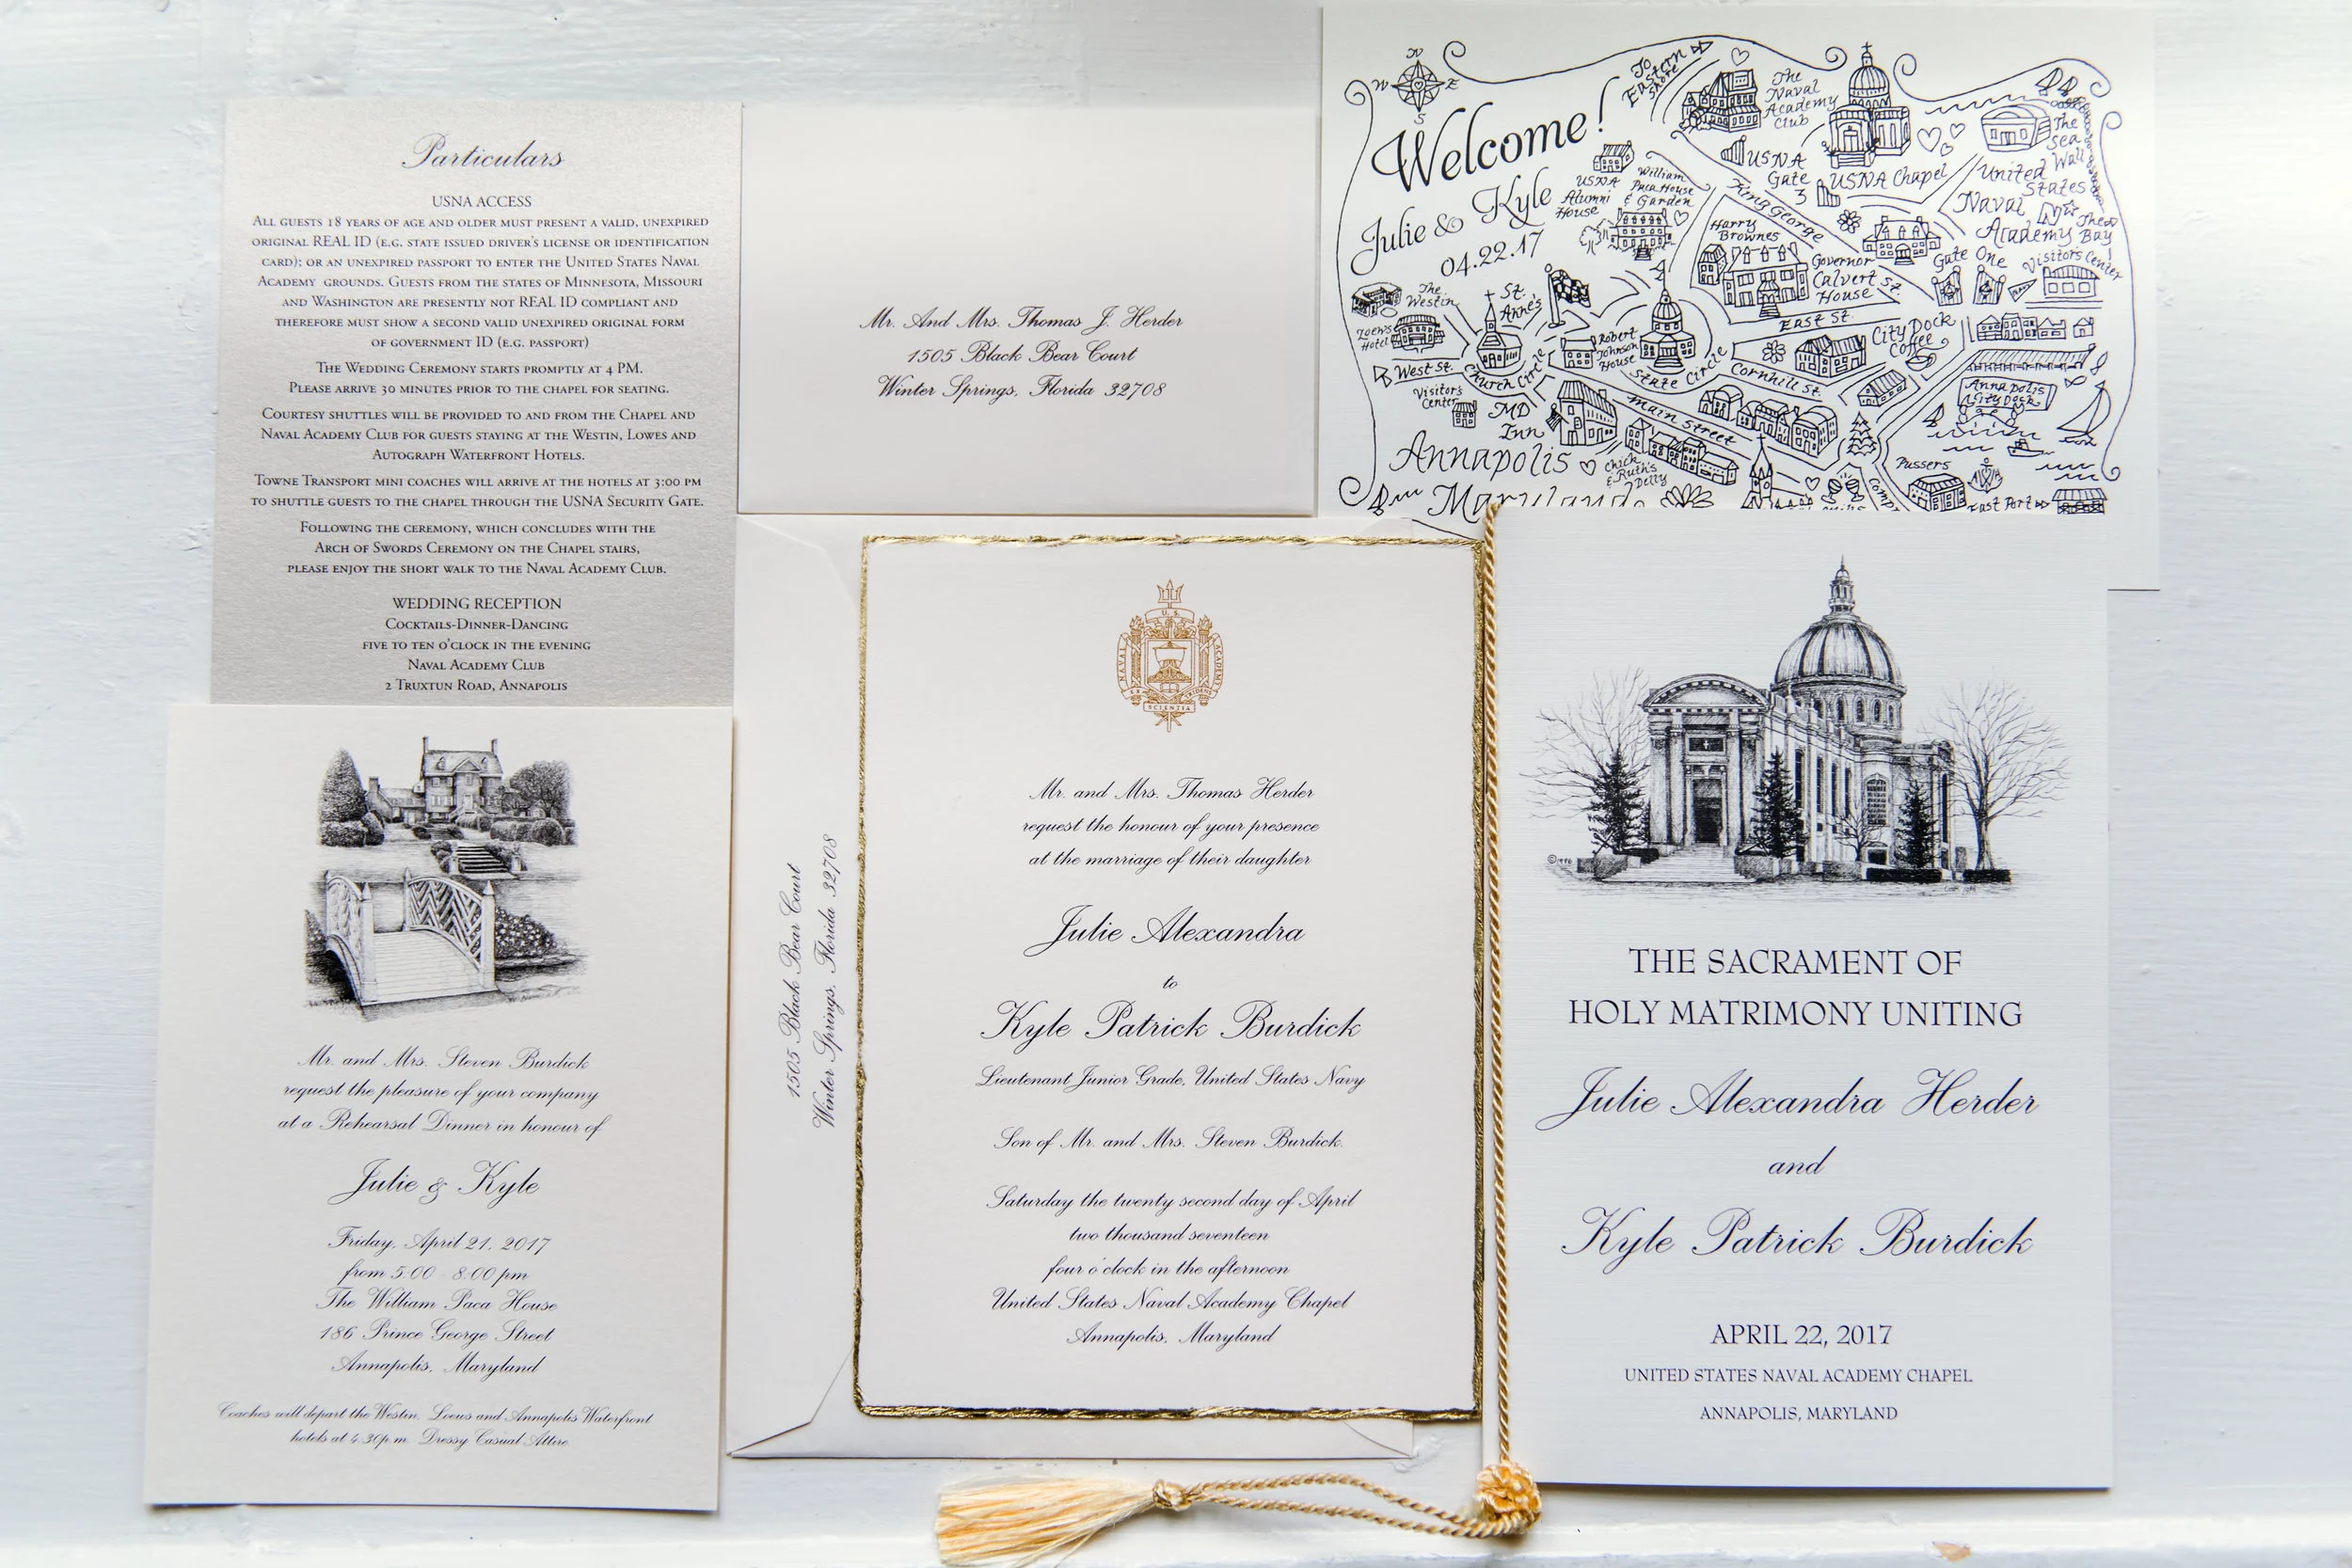 Particulars
USNA ACCESS
ALL GUESTS 18 YEARS OF AGE AND OLDER MUST PRESENT A VALID, UNEXPIRED
ORIGINAL REAL ID (E.G. STATE ISSUED DRIVER'S LICENSE OR IDENTIFICATION
CARD); OR AN UNEXPIRED PASSPORT TO ENTER THE UNITED STATES NAVAL
ACADEMY GROUNDS. GUESTS FROM THE STATES OF MINNESOTA, MISSOURI
AND WASHINGTON ARE PRESENTLY NOT REAL ID COMPLIANT AND
THEREFORE MUST SHOW A SECOND VALID UNEXPIRED ORIGINAL FORM
OF GOVERNMENT ID (E.G. PASSPORT)
THE WEDDING CEREMONY STARTS PROMPTLY AT 4 PM.
PLEASE ARRIVE 30 MINUTES PRIOR TO THE CHAPEL FOR SEATING.
COURTESY SHUTTLES WILL BE PROVIDED TO AND FROM THE CHAPEL AND
NAVAL ACADEMY CLUB FOR GUESTS STAYING AT THE WESTIN, LOWES AND
AUTOGRAPH WATERFRONT HOTELS.
TOWNE TRANSPORT MINI COACHES WILL ARRIVE AT THE HOTELS AT 3:00 PM
TO SHUTTLE GUESTS TO THE CHAPEL THROUGH THE USNA SECURITY GATE.
FOLLOWING THE CEREMONY, WHICH CONCLUDES WITH THE
ARCH OF SWORDS CEREMONY ON THE CHAPEL STAIRS,
PLEASE ENJOY THE SHORT WALK TO THE NAVAL ACADEMY CLUB.
WEDDING RECEPTION
COCKTAILS-DINNER-DANCING
FIVE TO TEN O'CLOCK IN THE EVENING
NAVAL ACADEMY CLUB
2 TRUXTUN ROAD, ANNAPOLIS
Mr. And Mrs. Thomas J. Herder
1505 Black Bear Court
Winter Springs, Florida 32708
N
W E
S
Welcome!
Julie & Kyle
04.22.17
To
Eastern
Shore
The
Naval
Academy
Club
USNA
Gate
3
USNA Chapel
The
Sea
Wall
United
States
Naval
Academy
The
Bay
USNA
Alumni
House
William
Paca House
& Garden
King George
Harry
Brownes
Governor
Calvert
House
St.
Gate One
Visitors Center
The
Westin
Loews
Hotel
St.
Anne's
West St.
Church Circle
Robert
Johnson
House
State Circle
East St.
City Dock
Coffee
Cornhill St.
Visitor's
Center
MD
Inn
Main Street
Annapolis
City Dock
Annapolis
Maryland
Chick
& Ruth's
Delly
Pussers
East Port
Mr. and Mrs. Steven Burdick
request the pleasure of your company
at a Rehearsal Dinner in honour of
Julie & Kyle
Friday, April 21, 2017
from 5:00 - 8:00 pm
The William Paca House
186 Prince George Street
Annapolis, Maryland
Coaches will depart the Westin, Loews and Annapolis Waterfront
hotels at 4:30p.m. Dressy Casual Attire
1505 Black Bear Court
Winter Springs, Florida 32708
U. S.
NAVAL ACADEMY
EX SCIENTIA TRIDENS
Mr. and Mrs. Thomas Herder
request the honour of your presence
at the marriage of their daughter
Julie Alexandra
to
Kyle Patrick Burdick
Lieutenant Junior Grade, United States Navy
Son of Mr. and Mrs. Steven Burdick
Saturday the twenty second day of April
two thousand seventeen
four o'clock in the afternoon
United States Naval Academy Chapel
Annapolis, Maryland
THE SACRAMENT OF
HOLY MATRIMONY UNITING
Julie Alexandra Herder
and
Kyle Patrick Burdick
APRIL 22, 2017
UNITED STATES NAVAL ACADEMY CHAPEL
ANNAPOLIS, MARYLAND